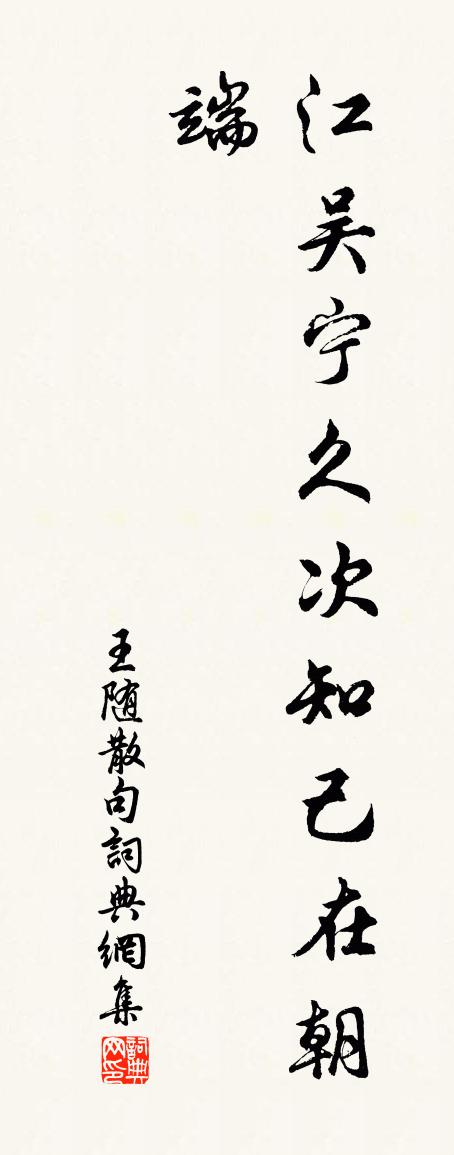 江吴宁久次知己在朝
端
王随散句詞典網集
詞典网印